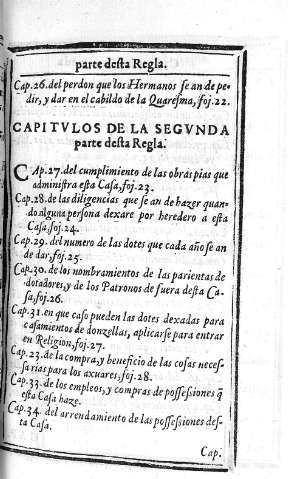 parte desta Regla.
Cap.26.del perdon que los Hermanos se an de pe-
dir, y dar en el cabildo de la Quaresma, foj.22.
CAPITVLOS DE LA SEGVNDA
parte desta Regla.
CAp.27.del cumplimiento de las obras pias que
administra esta Casa, foj.23.
Cap.28.de las diligencias que se an de hazer quan-
do alguna persona dexare por heredero a esta
Casa, foj.24.
Cap.29. del numero de las dotes que cada año se an
de dar, foj.25.
Cap.30. de los nombramientos de las parientas de
dotadores, y de los Patronos de fuera desta Ca-
sa, foj.26.
Cap.31.en que caso pueden las dotes dexadas para
casamientos de donzellas, aplicarse para entrar
en Religion, foj.27.
Cap.23.de la compra, y beneficio de las cosas neces-
sarias para los axuares, foj.28.
Cap.33.de los empleos, y compras de possessiones q̃
esta Casa haze.
Cap.34. del arrendamiento de las possessiones des-
ta Casa.
Cap.